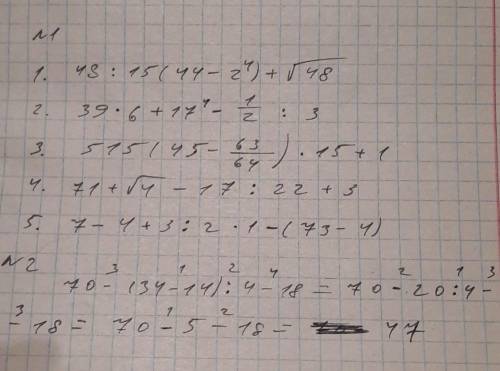 №1
1. 48 : 15(44 - 2⁴) + √48
2. 39 · 6 + 17⁴ - 1/2 : 3
3. 515(45 - 63/64) · 15 + 1
4. 71 + √4 - 17 : 22 + 3
5. 7 - 4 + 3 : 2 · 1 - (73 - 4)
№2
70 -³ (34 -¹ 14) :² 4 -⁴ 18 = 70 -² 20 :¹ 4 -³
-³ 18 = 70 -¹ 5 -² 18 = 47